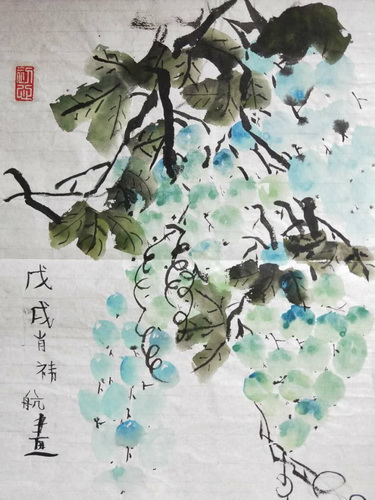 戊戌肖祎航畫